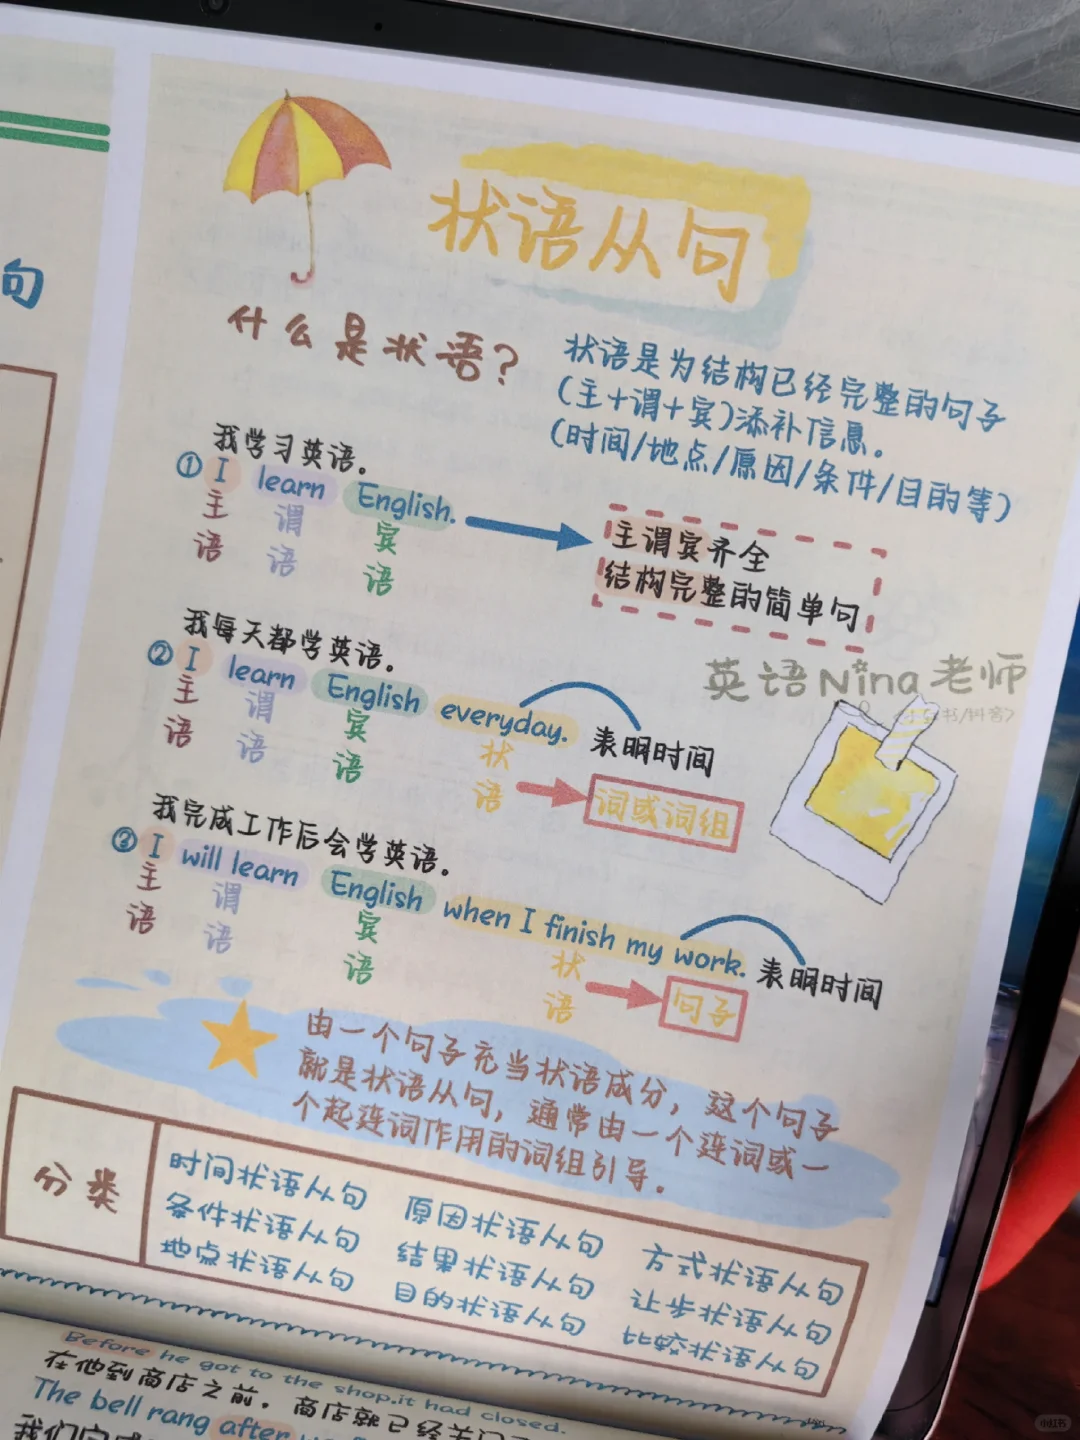 句
状语从句
什么是状语?
状语是为结构已经完整的句子
(主+谓+宾)添补信息。
(时间/地点/原因/条件/目的等)
我学习英语。
① I learn English.
主语 谓语 宾语
主谓宾齐全
结构完整的简单句
我每天都学英语。
② I learn English everyday.
主语 谓语 宾语 状语
表明时间
词或词组
英语Nina老师
我完成工作后会学英语。
③ I will learn English when I finish my work.
主语 谓语 宾语 状语
表明时间
句子
由一个句子充当状语成分，这个句子
就是状语从句，通常由一个连词或一
个起连词作用的词组引导。
分类
时间状语从句 原因状语从句 方式状语从句
条件状语从句 结果状语从句 让步状语从句
地点状语从句 目的状语从句 比较状语从句
Before he got to the shop.it had closed.
在他到商店之前，商店就已经关门
The bell rang after
我们完成
小红书